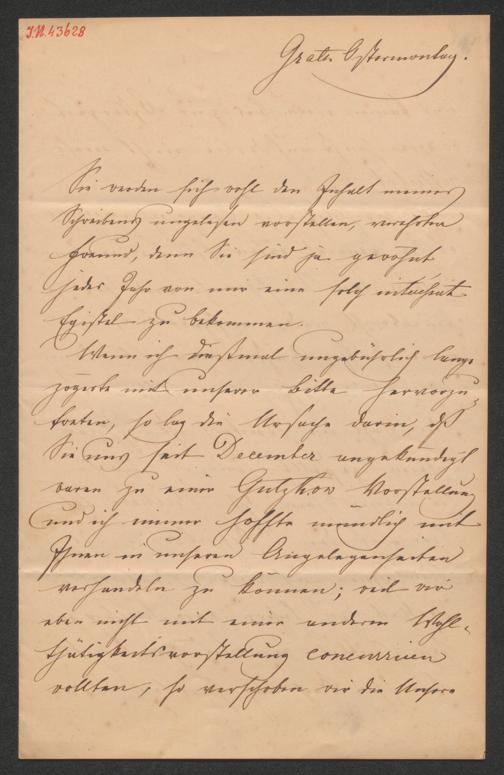 J.N. 43628
Gratz Ostermontag.
Sie werden sich wohl den Inhalt meines
Schreibens ungelesen vorstellen, verehrter
Freund, denn Sie sind ja gewöhnt
jedes Jahr von mir eine solch
Epistel zu bekommen.
Wenn ich diesmal ungebührlich lange
zögerte mit unserer Bitte hervorzu-
treten, so lag die Ursache darin, dß
Sie uns seit December angekündigt
waren zu einer Gutzkow Vorstellung
und ich immer hoffte mündlich mit
Ihnen in unseren Angelegenheiten
verhandeln zu können; weil wir
eben nicht mit einer anderen Wohl-
thätigkeitsvorstellung concurriren
wollten, so verschoben wir die Unsere